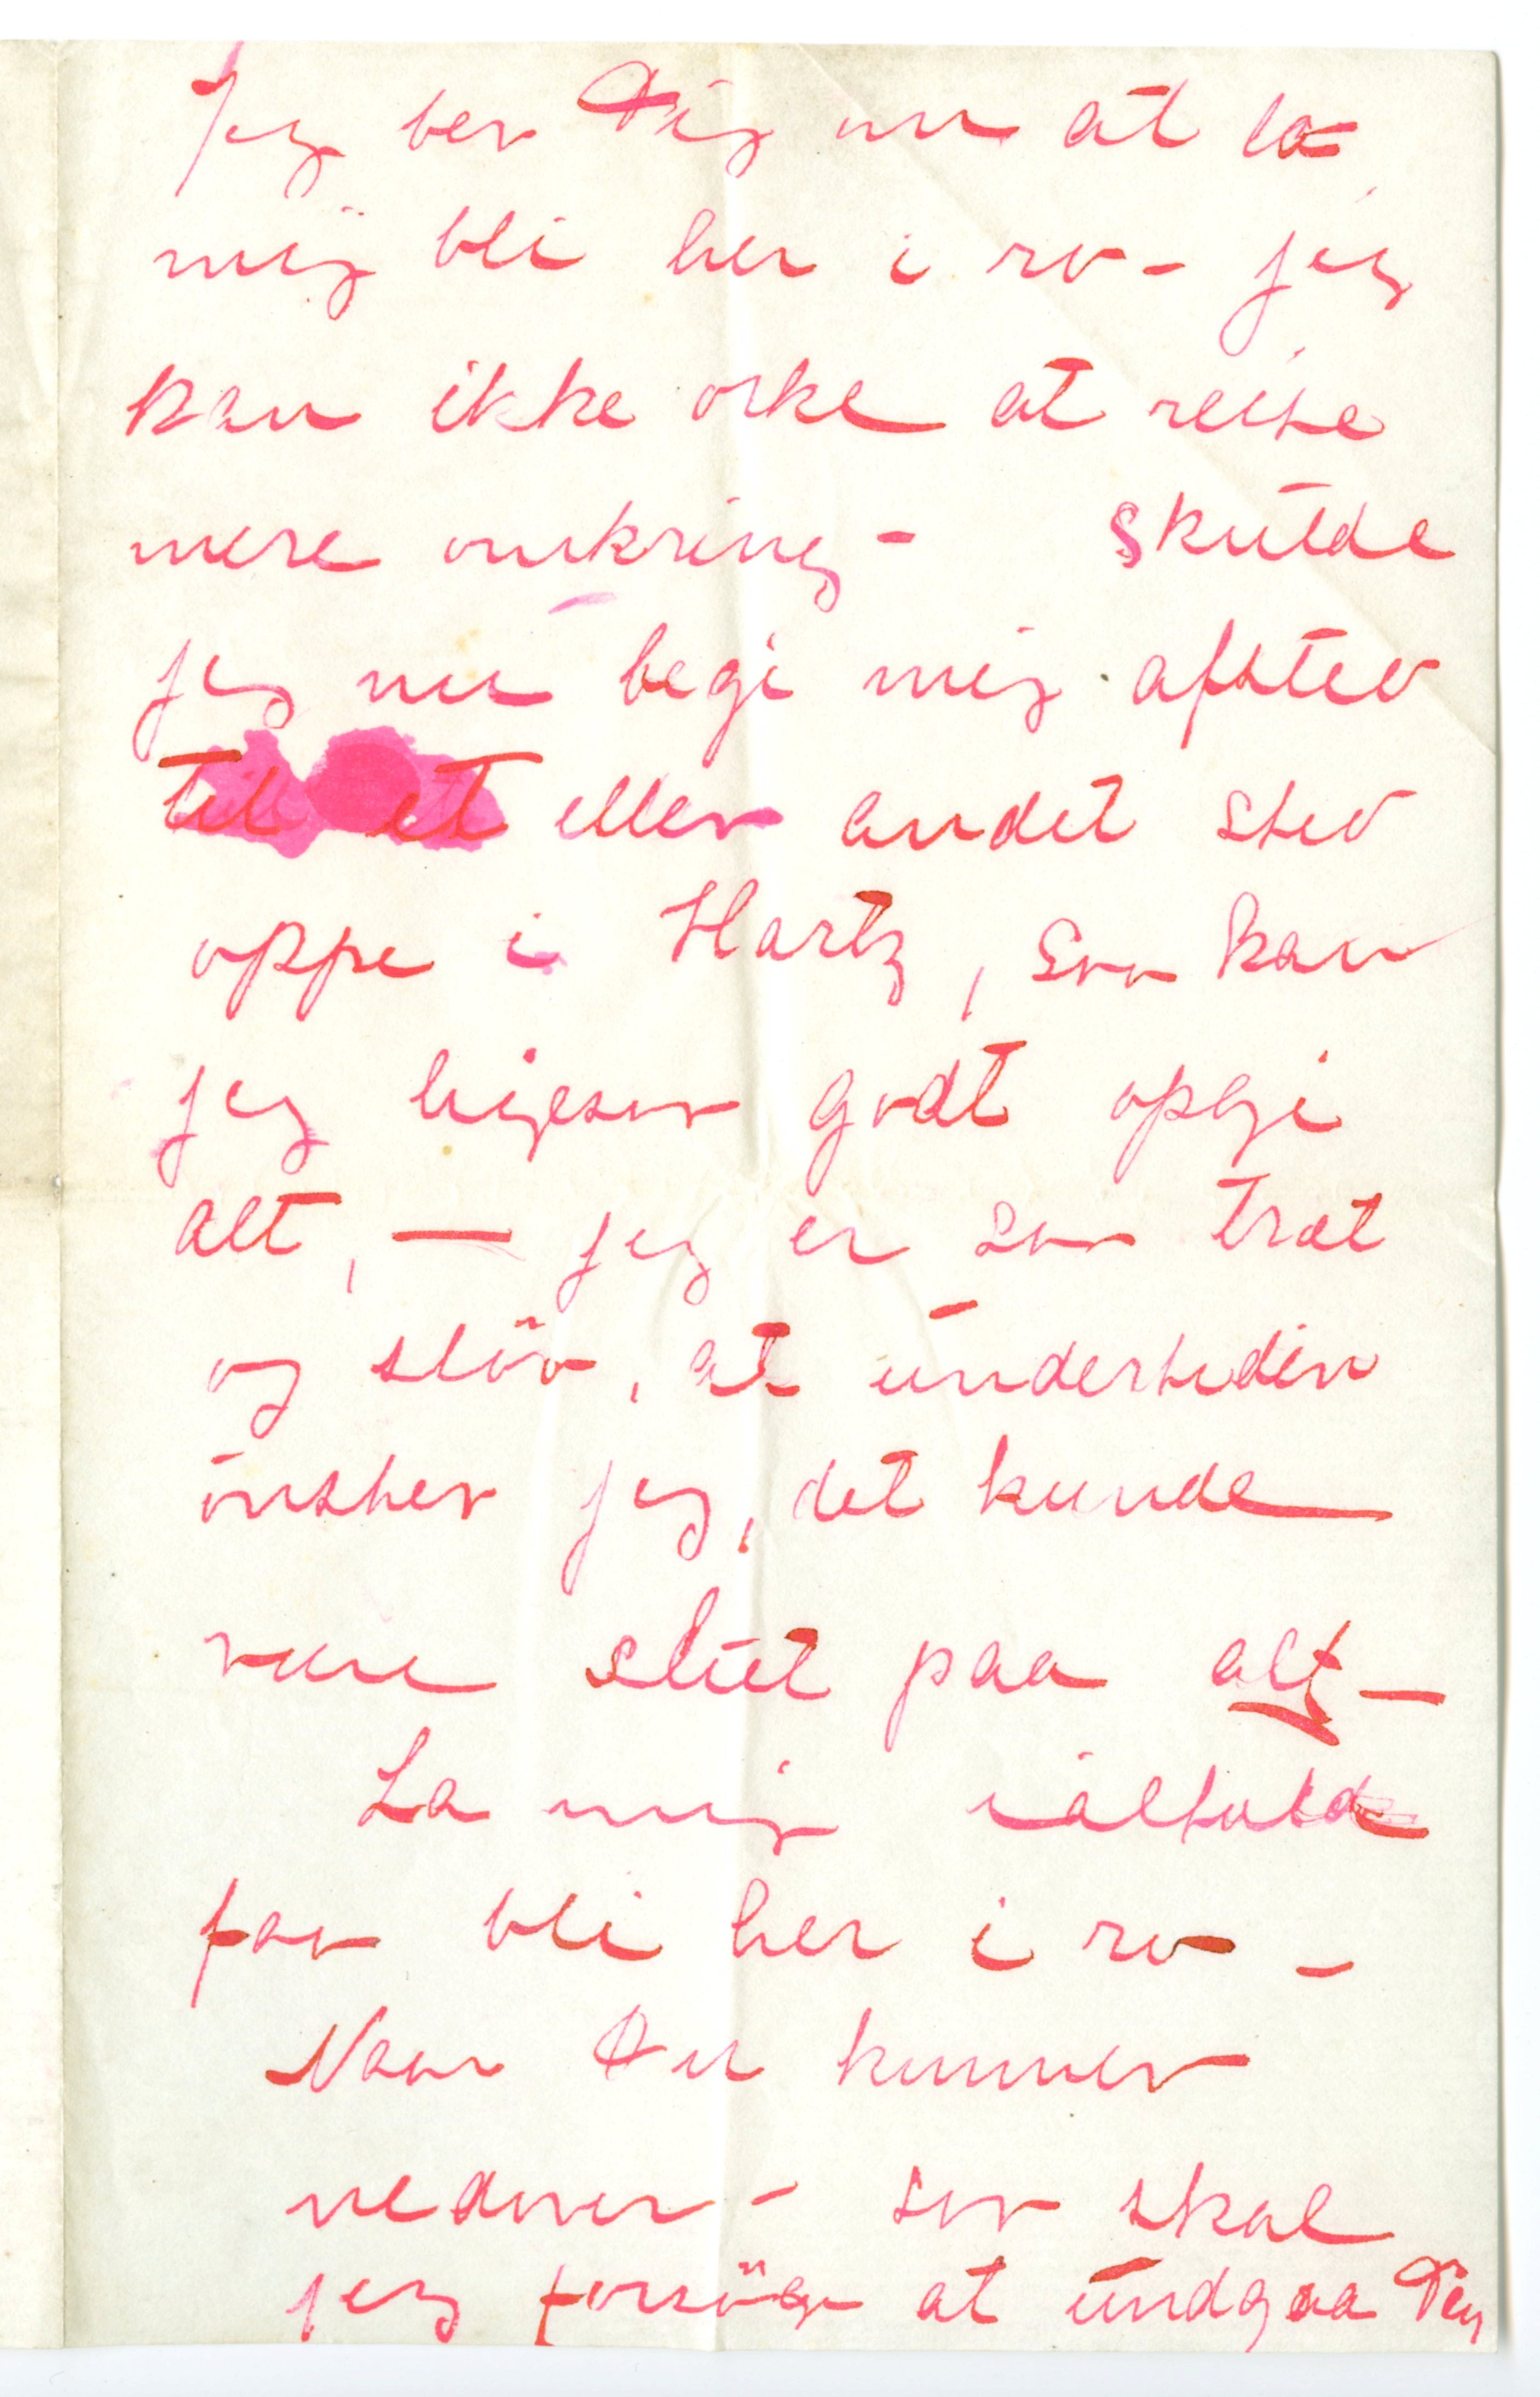 Jeg ber Dig om at la
mig bli her i ro – jeg
kan ikke orke at reise
mere omkring – skulde
jeg nu begi mig afsted
til et eller andet sted
oppe i Hartz, saa kan
jeg ligesaa godt opgi
alt, — jeg er saa træt
og sløv, at undertiden
ønsker jeg, det kunde
være slut paa alt –
La mig ialfald
faa bli her i ro –
Naar Du kommer
nedover – saa skal
jeg forsøge at undgaa Dig